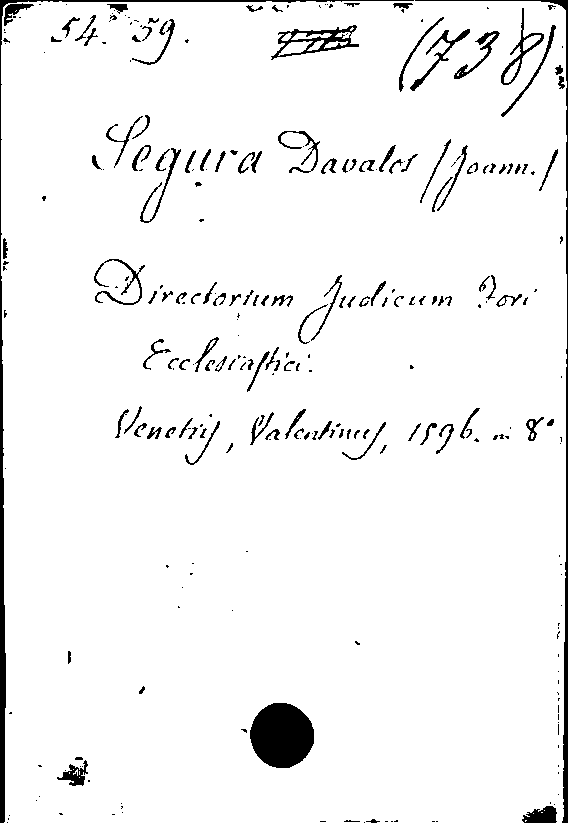 54. 59. (738)
Segura Davalos /Joann./
Directorium Judicum Fori
Ecclesiastici.
Venetiis, Valentinus, 1596. in 8°